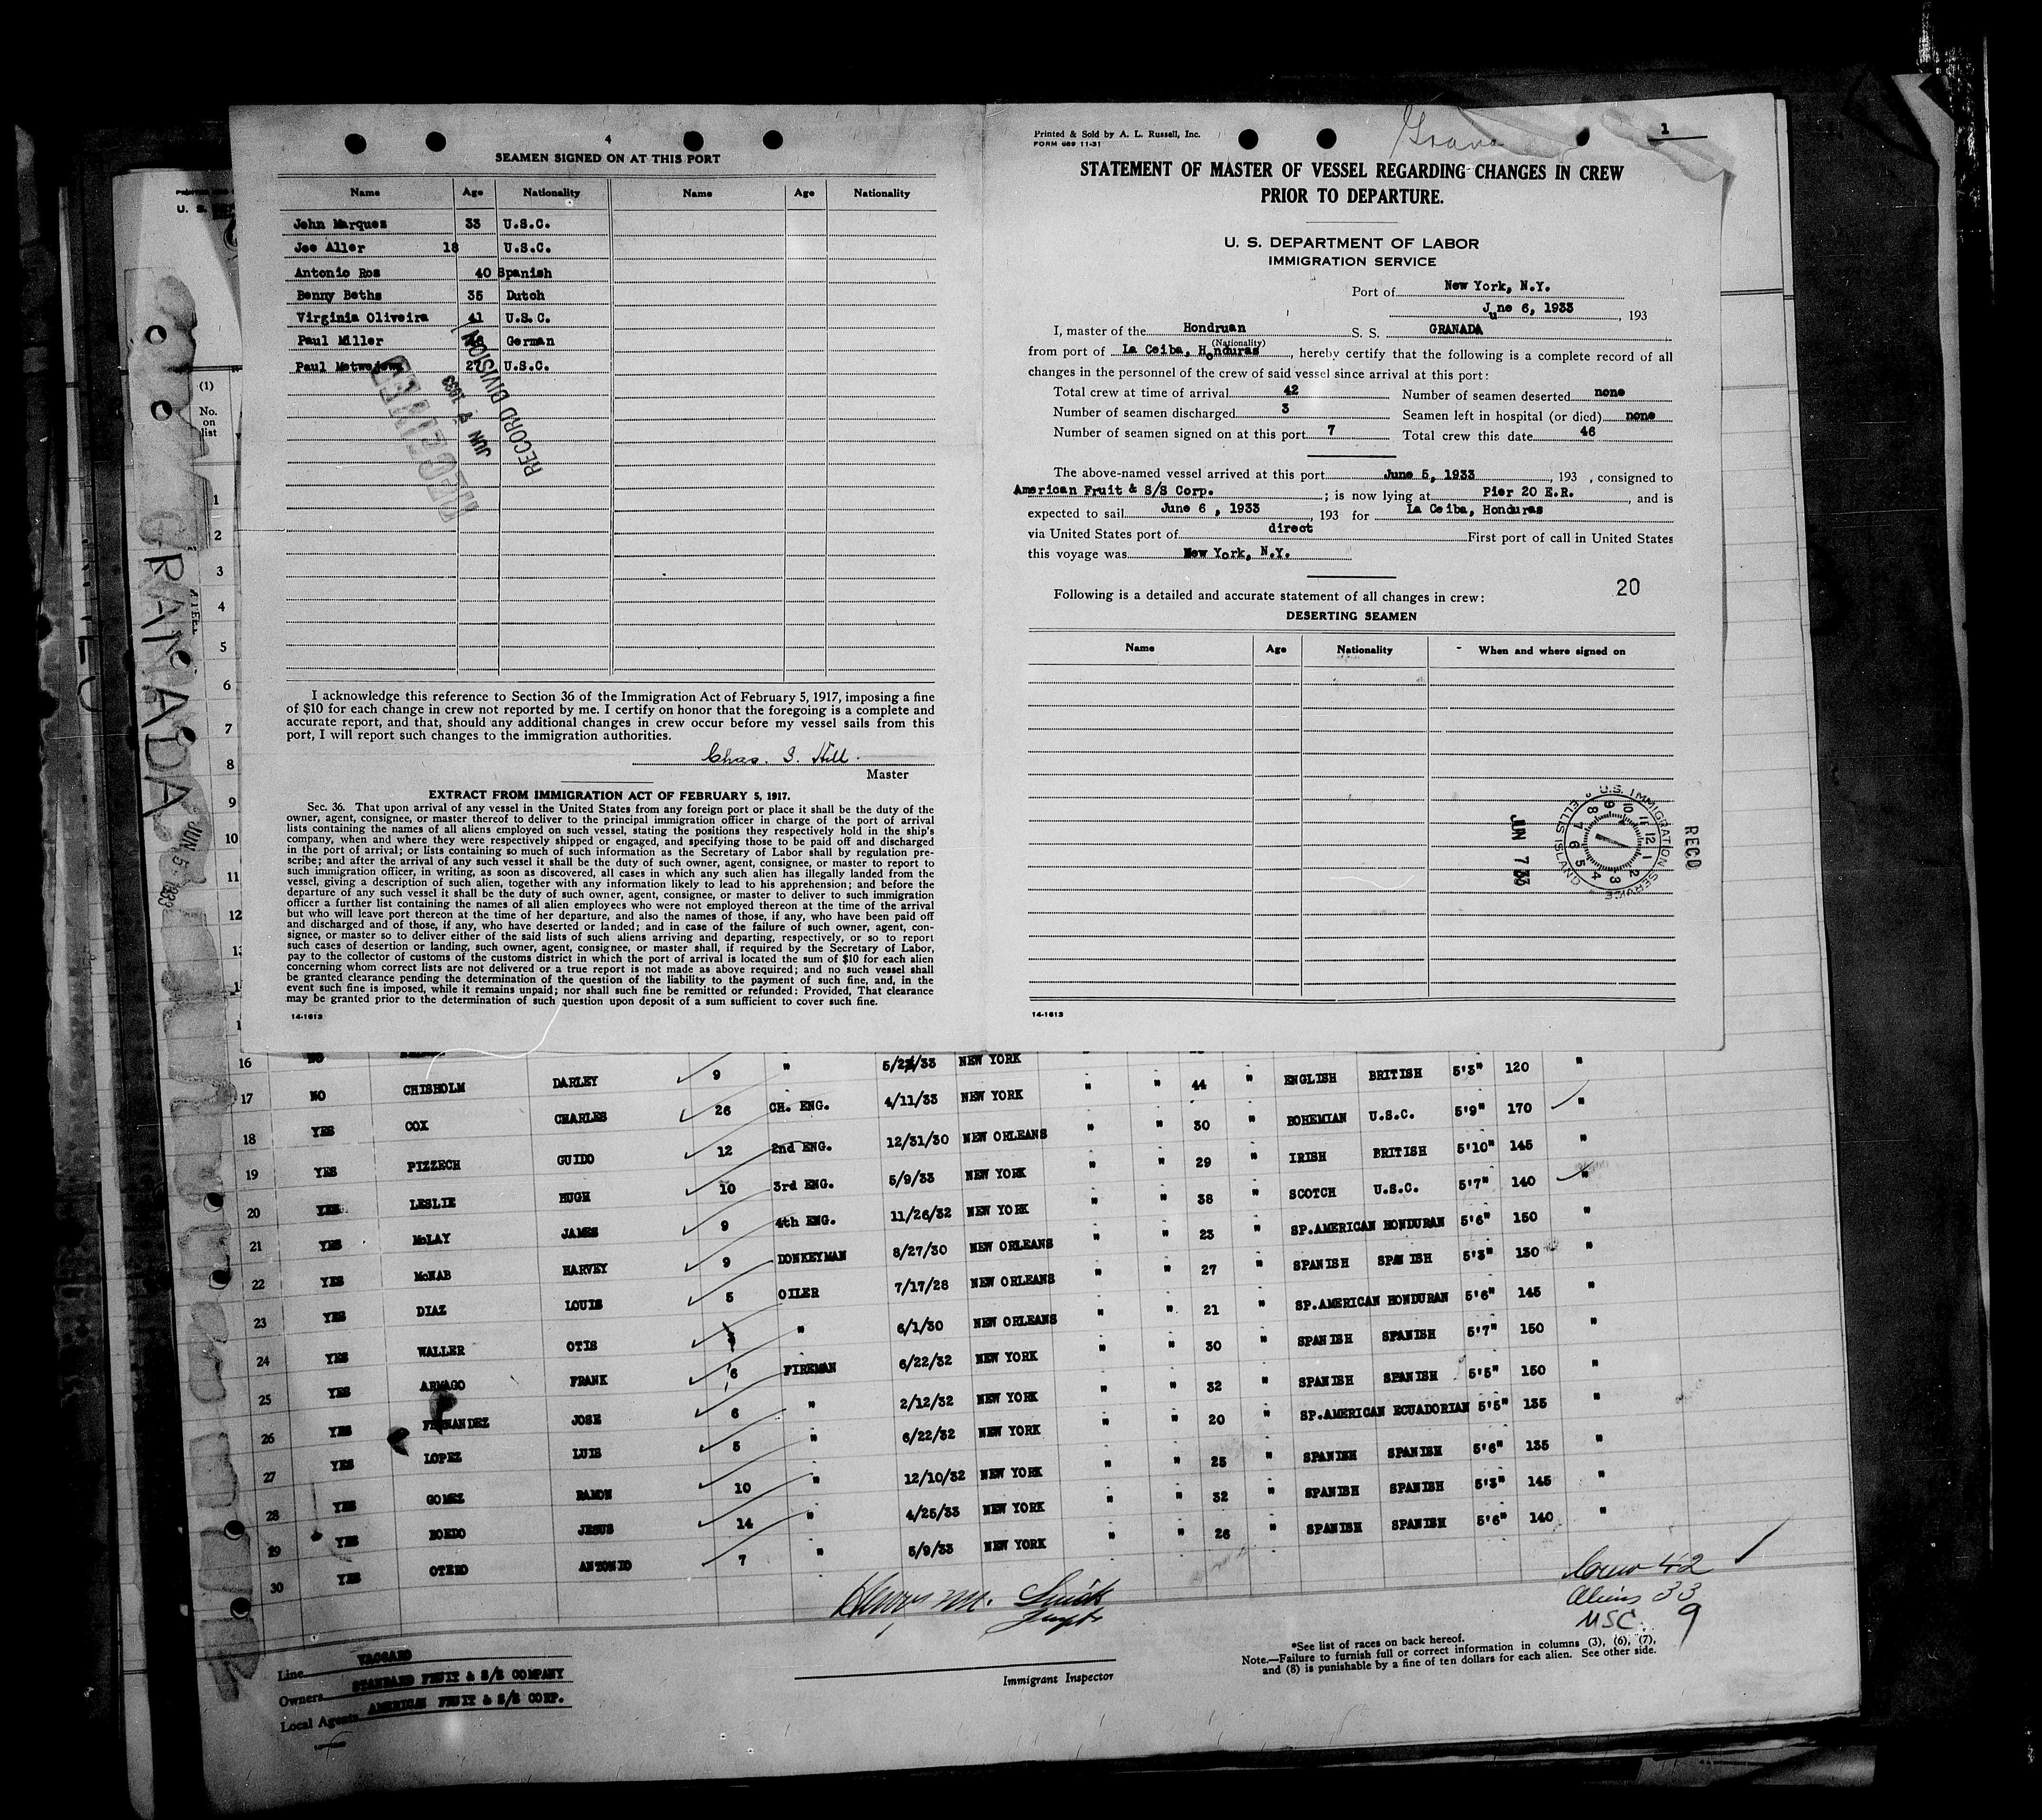 4
SEAMEN SIGNED ON AT THIS PORT
Name Age Nationality Name Age Nationality
John Marquez 33 U.S.C.
Joe Aller 18 U.S.C.
Antonio Ros 40 Spanish
Benny Beths 35 Dutch
Virginia Oliveira 41 U.S.C.
Paul Miller German
Paul 27 U.S.C.
RECEIVED
JUN 1933
RECORD DIVISION
I acknowledge this reference to Section 36 of the Immigration Act of February 5, 1917, imposing a fine
of $10 for each change in crew not reported by me. I certify on honor that the foregoing is a complete and
accurate report, and that, should any additional changes in crew occur before my vessel sails from this
port, I will report such changes to the immigration authorities.
Chas. S. Hill
Master
EXTRACT FROM IMMIGRATION ACT OF FEBRUARY 5, 1917.
Sec. 36. That upon arrival of any vessel in the United States from any foreign port or place it shall be the duty of the
owner, agent, consignee, or master thereof to deliver to the principal immigration officer in charge of the port of arrival
lists containing the names of all aliens employed on such vessel, stating the positions they respectively hold in the ship's
company, when and where they were respectively shipped or engaged, and specifying those to be paid off and discharged
in the port of arrival; or lists containing so much of such information as the Secretary of Labor shall by regulation pre-
scribe; and after the arrival of any such vessel it shall be the duty of such owner, agent, consignee, or master to report to
such immigration officer, in writing, as soon as discovered, all cases in which any such alien has illegally landed from the
vessel, giving a description of such alien, together with any information likely to lead to his apprehension; and before the
departure of any such vessel it shall be the duty of such owner, agent, consignee, or master to deliver to such immigration
officer a further list containing the names of all alien employees who were not employed thereon at the time of the arrival
but who will leave port thereon at the time of her departure, and also the names of those, if any, who have been paid off
and discharged and of those, if any, who have deserted or landed; and in case of the failure of such owner, agent, con-
signee, or master so to deliver either of the said lists of such aliens arriving and departing, respectively, or so to report
such cases of desertion or landing, such owner, agent, consignee, or master shall, if required by the Secretary of Labor,
pay to the collector of customs of the customs district in which the port of arrival is located the sum of $10 for each alien
concerning whom correct lists are not delivered or a true report is not made as above required; and no such vessel shall
be granted clearance pending the determination of the question of the liability to the payment of such fine, and, in the
event such fine is imposed, while it remains unpaid; nor shall such fine be remitted or refunded: Provided, That clearance
may be granted prior to the determination of such question upon deposit of a sum sufficient to cover such fine.
14-1613
Printed & Sold by A. L. Russell, Inc.
FORM 689 11-31
1
STATEMENT OF MASTER OF VESSEL REGARDING CHANGES IN CREW
PRIOR TO DEPARTURE.
U. S. DEPARTMENT OF LABOR
IMMIGRATION SERVICE
Port of New York, N.Y.
June 6, 1933, 193
I, master of the Hondruan S. S. GRANADA
(Nationality)
from port of La Ceiba, Honduras, hereby certify that the following is a complete record of all
changes in the personnel of the crew of said vessel since arrival at this port:
Total crew at time of arrival 42 Number of seamen deserted none
Number of seamen discharged 3 Seamen left in hospital (or died) none
Number of seamen signed on at this port 7 Total crew this date 46
The above-named vessel arrived at this port June 5, 1933, 193 , consigned to
American Fruit & S/S Corp. ; is now lying at Pier 20 E.R., and is
expected to sail June 6, 1933, 193 for La Ceiba, Honduras
via United States port of direct First port of call in United States
this voyage was New York, N.Y.
20
Following is a detailed and accurate statement of all changes in crew:
DESERTING SEAMEN
Name Age Nationality When and where signed on
RECD
JUN 7 '33
U.S. IMMIGRATION SERVICE ELLIS ISLAND
12 1 2 3 4 5 6 7 8 9 10 11
14-1613
GRANADA
JUN 5 1933
U. S.
(1)
No.
on
list
1
2
3
4
5
6
7
8
9
10
11
12
16 NO " 5/22/33 NEW YORK
17 NO CHISHOLM DARLEY 9 " " 44 " ENGLISH BRITISH 5'3" 120 "
18 YES COX CHARLES 26 CH. ENG. 4/11/33 NEW YORK " " 30 " BOHEMIAN U.S.C. 5'9" 170 "
19 YES PIZZECH GUIDO 12 2nd ENG. 12/31/30 NEW ORLEANS " " 29 " IRISH BRITISH 5'10" 145 "
20 YES LESLIE HUGH 10 3rd ENG. 5/9/33 NEW YORK " " 38 " SCOTCH U.S.C. 5'7" 140 "
21 YES McLAY JAMES 9 4th ENG. 11/26/32 NEW YORK " " 23 " SP.AMERICAN HONDURAN 5'6" 150 "
22 YES McNAB HARVEY 9 DONKEYMAN 8/27/30 NEW ORLEANS " " 27 " SPANISH SPANISH 5'3" 130 "
23 YES DIAZ LOUIS 5 OILER 7/17/28 NEW ORLEANS " " 21 " SP.AMERICAN HONDURAN 5'6" 145 "
24 YES WALLER OTIS " 6/1/30 NEW ORLEANS " " 30 " SPANISH SPANISH 5'7" 150 "
25 YES ARMAGO FRANK 6 FIREMAN 6/22/32 NEW YORK " " 32 " SPANISH SPANISH 5'5" 150 "
26 YES FERNANDEZ JOSE 6 " 2/12/32 NEW YORK " " 20 " SP.AMERICAN ECUADORIAN 5'5" 135 "
27 YES LOPEZ LUIS 5 " 6/22/32 NEW YORK " " 25 " SPANISH SPANISH 5'6" 135 "
28 YES GOMEZ RAMON 10 " 12/10/32 NEW YORK " " 32 " SPANISH SPANISH 5'3" 145 "
29 YES BOEDO JESUS 14 " 4/25/33 NEW YORK " " 26 " SPANISH SPANISH 5'6" 140 "
30 YES OTERO ANTONIO 7 " 5/9/33 NEW YORK
Crew 42
Aliens 33
USC. 9
Line VACCARO
Owners STANDARD FRUIT & S/S COMPANY
Local Agents AMERICAN FRUIT & S/S CORP.
Immigrant Inspector
*See list of races on back hereof.
Note.—Failure to furnish full or correct information in columns (3), (6), (7),
and (8) is punishable by a fine of ten dollars for each alien. See other side.